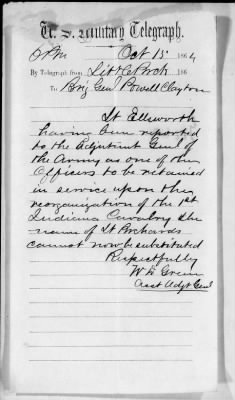 U. S. Military Telegraph.
6 Pm Oct 15 1864
By Telegraph from Little Rock 186
To Brig Genl Powell Clayton
Lt Ellsworth
having been reported
to the Adjutant Genl of
the Army as one of the
Officers to be retained
in service upon the
reorganization of the 1st
Indiana Cavalry the
name of Lt Richards
cannot now be substituted
Respectfully
W D Green
Asst Adjt Genl